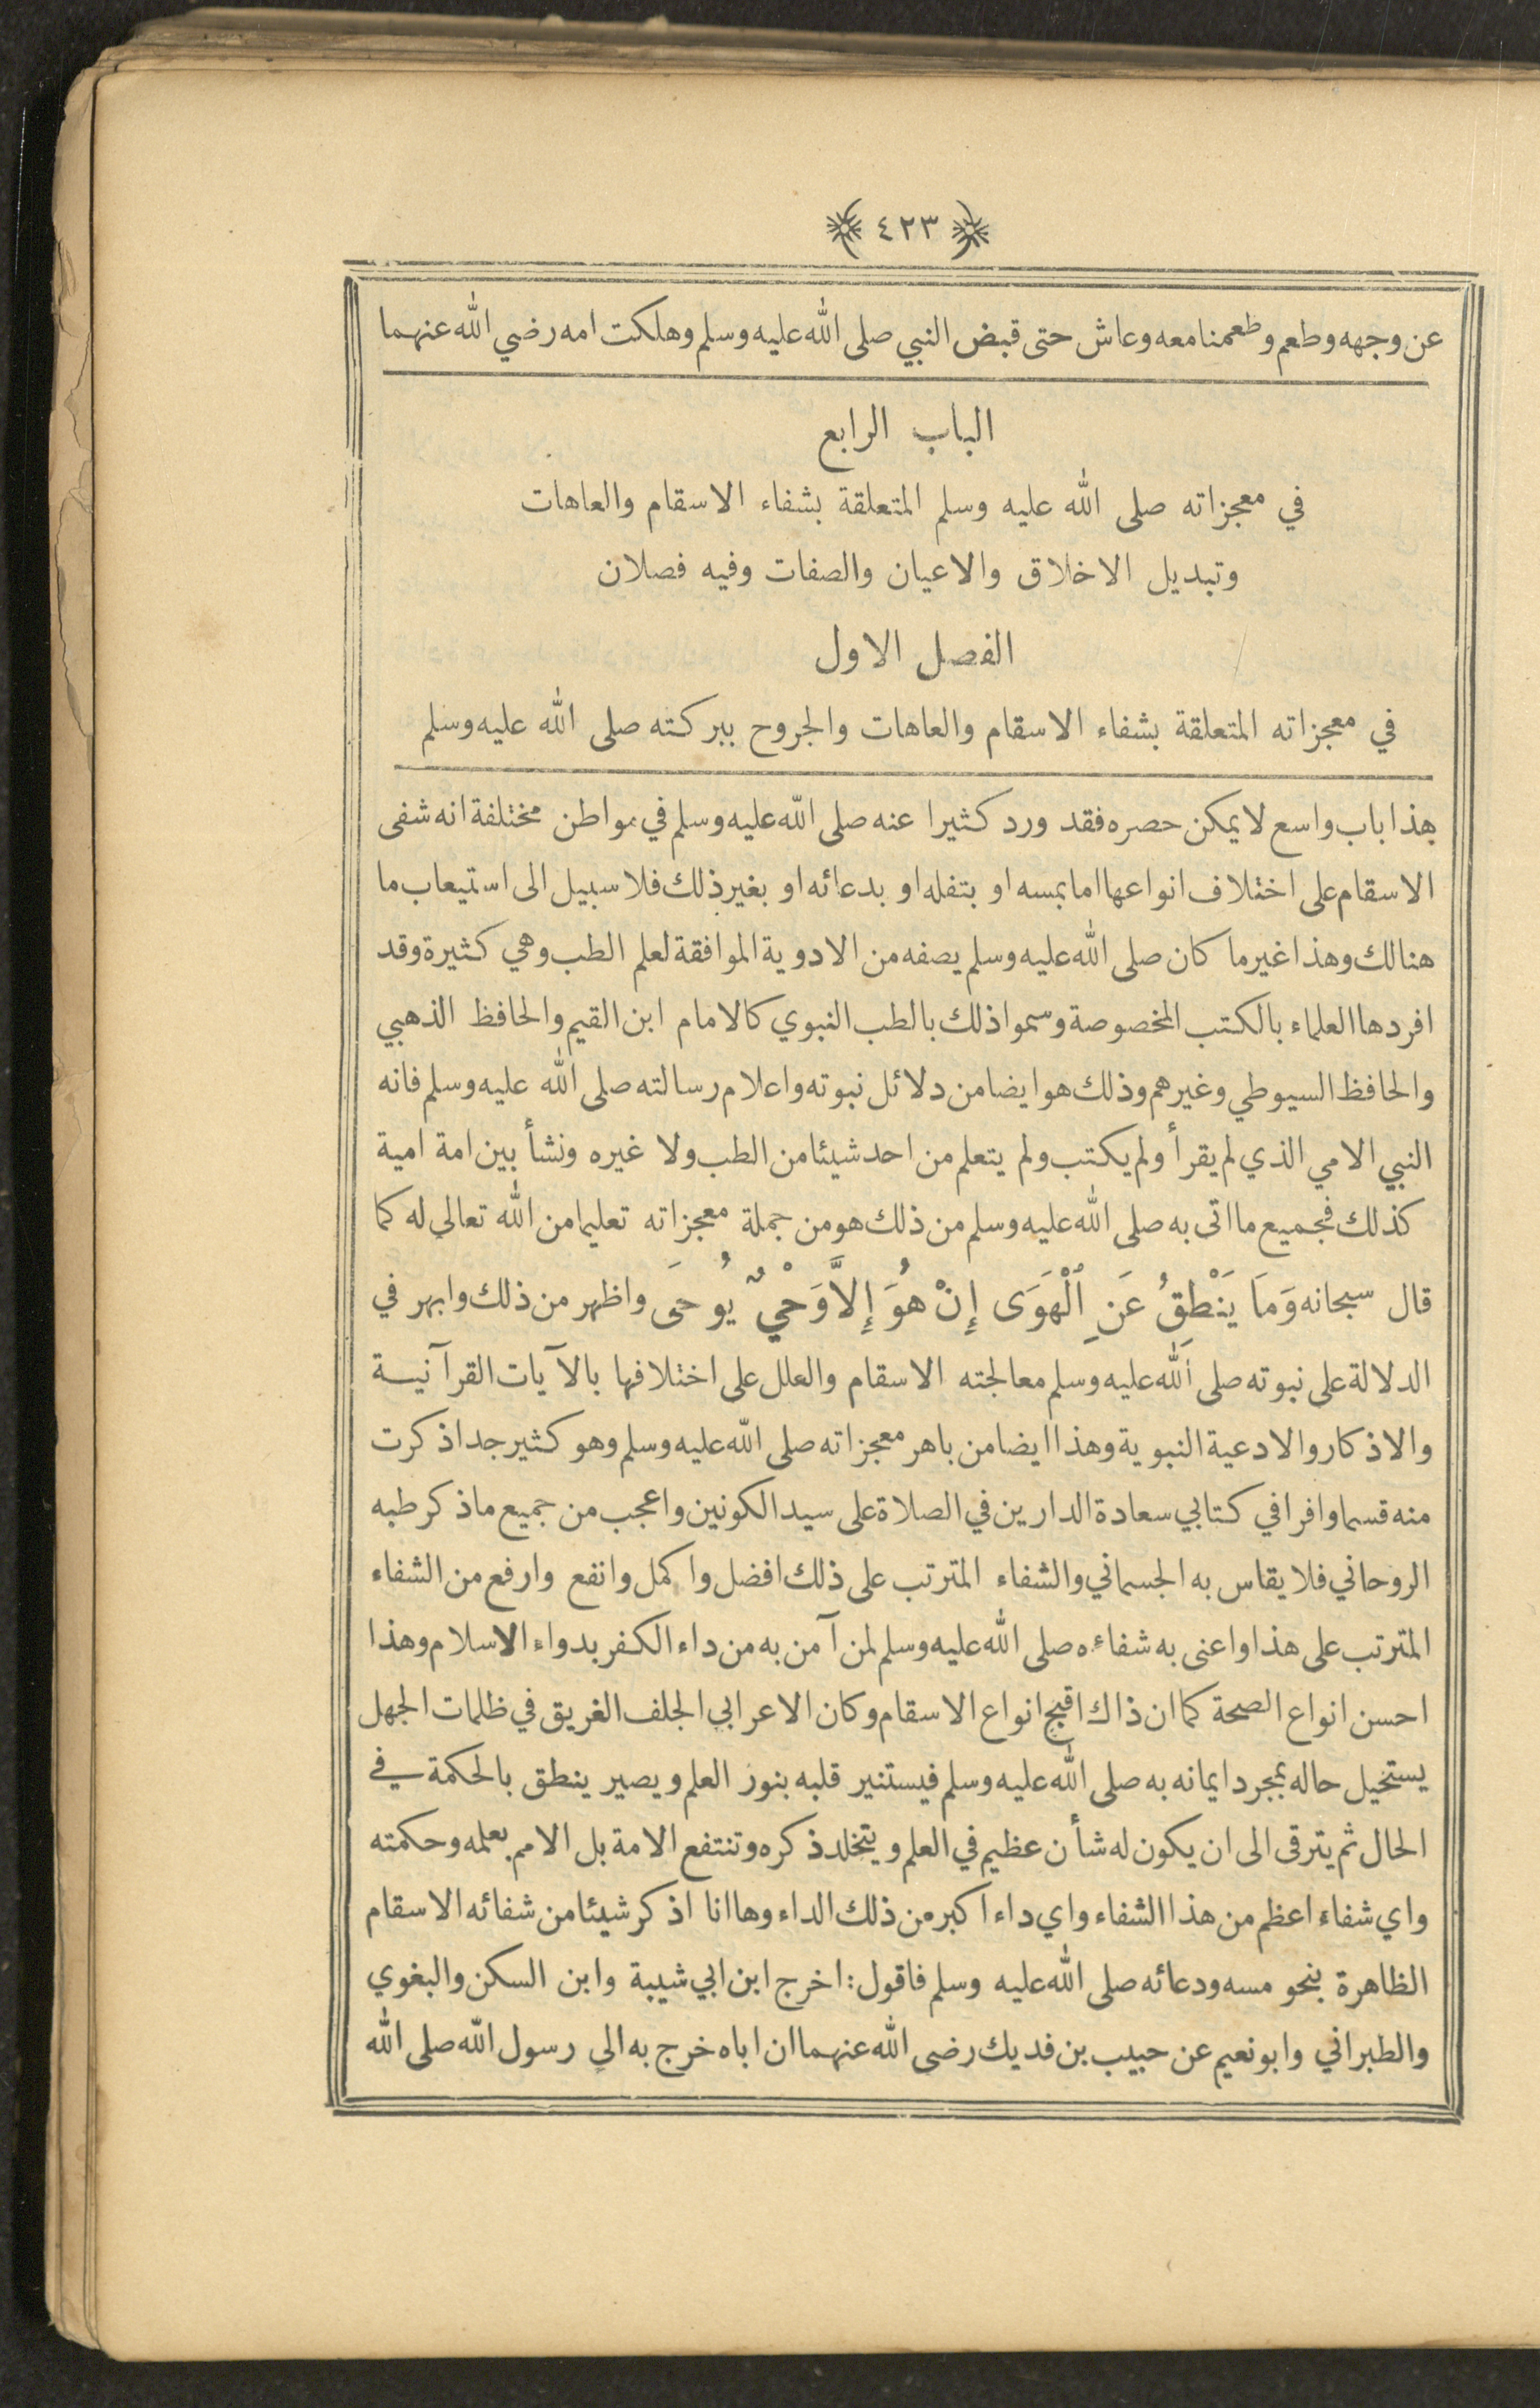 ﴿ ٤٢٣ ﴾
عن وجهه وطعم وطعمنا معه وعاش حتى قبض النبي صلى الله عليه وسلم وهلكت امه رضي الله عنهما
الباب الرابع
في معجزاته صلى الله عليه وسلم المتعلقة بشفاء الاسقام والعاهات
وتبديل الاخلاق والاعيان والصفات وفيه فصلان
الفصل الاول
في معجزاته المتعلقة بشفاء الاسقام والعاهات والجروح ببركته صلى الله عليه وسلم
هذا باب واسع لا يمكن حصره فقد ورد كثيرا عنه صلى الله عليه وسلم في مواطن مختلفة انه شفى
الاسقام على اختلاف انواعها اما بمسه او بتفله او بدعائه او بغير ذلك فلا سبيل الى استيعاب ما
هنالك وهذا غير ما كان صلى الله عليه وسلم يصفه من الادوية الموافقة لعلم الطب وهي كثيرة وقد
افردها العلماء بالكتب المخصوصة وسموا ذلك بالطب النبوي كالامام ابن القيم والحافظ الذهبي
والحافظ السيوطي وغيرهم وذلك هو ايضا من دلائل نبوته واعلام رسالته صلى الله عليه وسلم فانه
النبي الامي الذي لم يقرأ ولم يكتب ولم يتعلم من احد شيئا من الطب ولا غيره ونشأ بين امة امية
كذلك فجميع ما اتى به صلى الله عليه وسلم من ذلك هو من جملة معجزاته تعليما من الله تعالى له كما
قال سبحانه وَمَا يَنْطِقُ عَنِ ٱلْهَوَى إِنْ هُوَ إِلاَّ وَحْيٌ يُوحَى واظهر من ذلك وابهر في
الدلالة على نبوته صلى الله عليه وسلم معالجته الاسقام والعلل على اختلافها بالآيات القرآنية
والاذكار والادعية النبوية وهذا ايضا من باهر معجزاته صلى الله عليه وسلم وهو كثير جدا ذكرت
منه قسما وافرا في كتابي سعادة الدارين في الصلاة على سيد الكونين واعجب من جميع ما ذكر طبه
الروحاني فلا يقاس به الجسماني والشفاء المترتب على ذلك افضل واكمل وانفع وارفع من الشفاء
المترتب على هذا واعنى به شفاءه صلى الله عليه وسلم لمن آمن به من داء الكفر بدواء الاسلام وهذا
احسن انواع الصحة كما ان ذاك اقبح انواع الاسقام وكان الاعرابي الجلف الغريق في ظلمات الجهل
يستحيل حاله بمجرد ايمانه به صلى الله عليه وسلم فيستنير قلبه بنور العلم ويصير ينطق بالحكمة في
الحال ثم يترقى الى ان يكون له شأن عظيم في العلم ويتخلد ذكره وتنتفع الامة بل الامم بعلمه وحكمته
واي شفاء اعظم من هذا الشفاء واي داء اكبر من ذلك الداء وها انا اذكر شيئا من شفائه الاسقام
الظاهرة بنحو مسه ودعائه صلى الله عليه وسلم فاقول: اخرج ابن ابي شيبة وابن السكن والبغوي
والطبراني وابو نعيم عن حبيب بن فديك رضى الله عنهما ان اباه خرج به الى رسول الله صلى الله